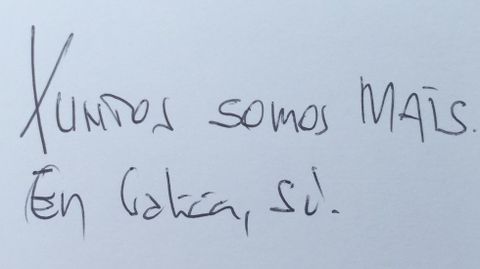 Xuntos somos MAIS.
En Galicia, sí.